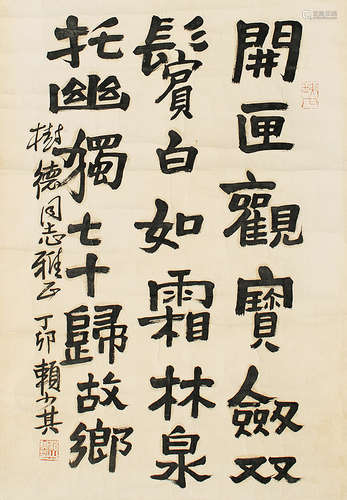 開匣觀寶劔双
鬂賔白如霜林泉
托幽獨七十歸故鄉
樹德同志雅正 丁卯賴少其